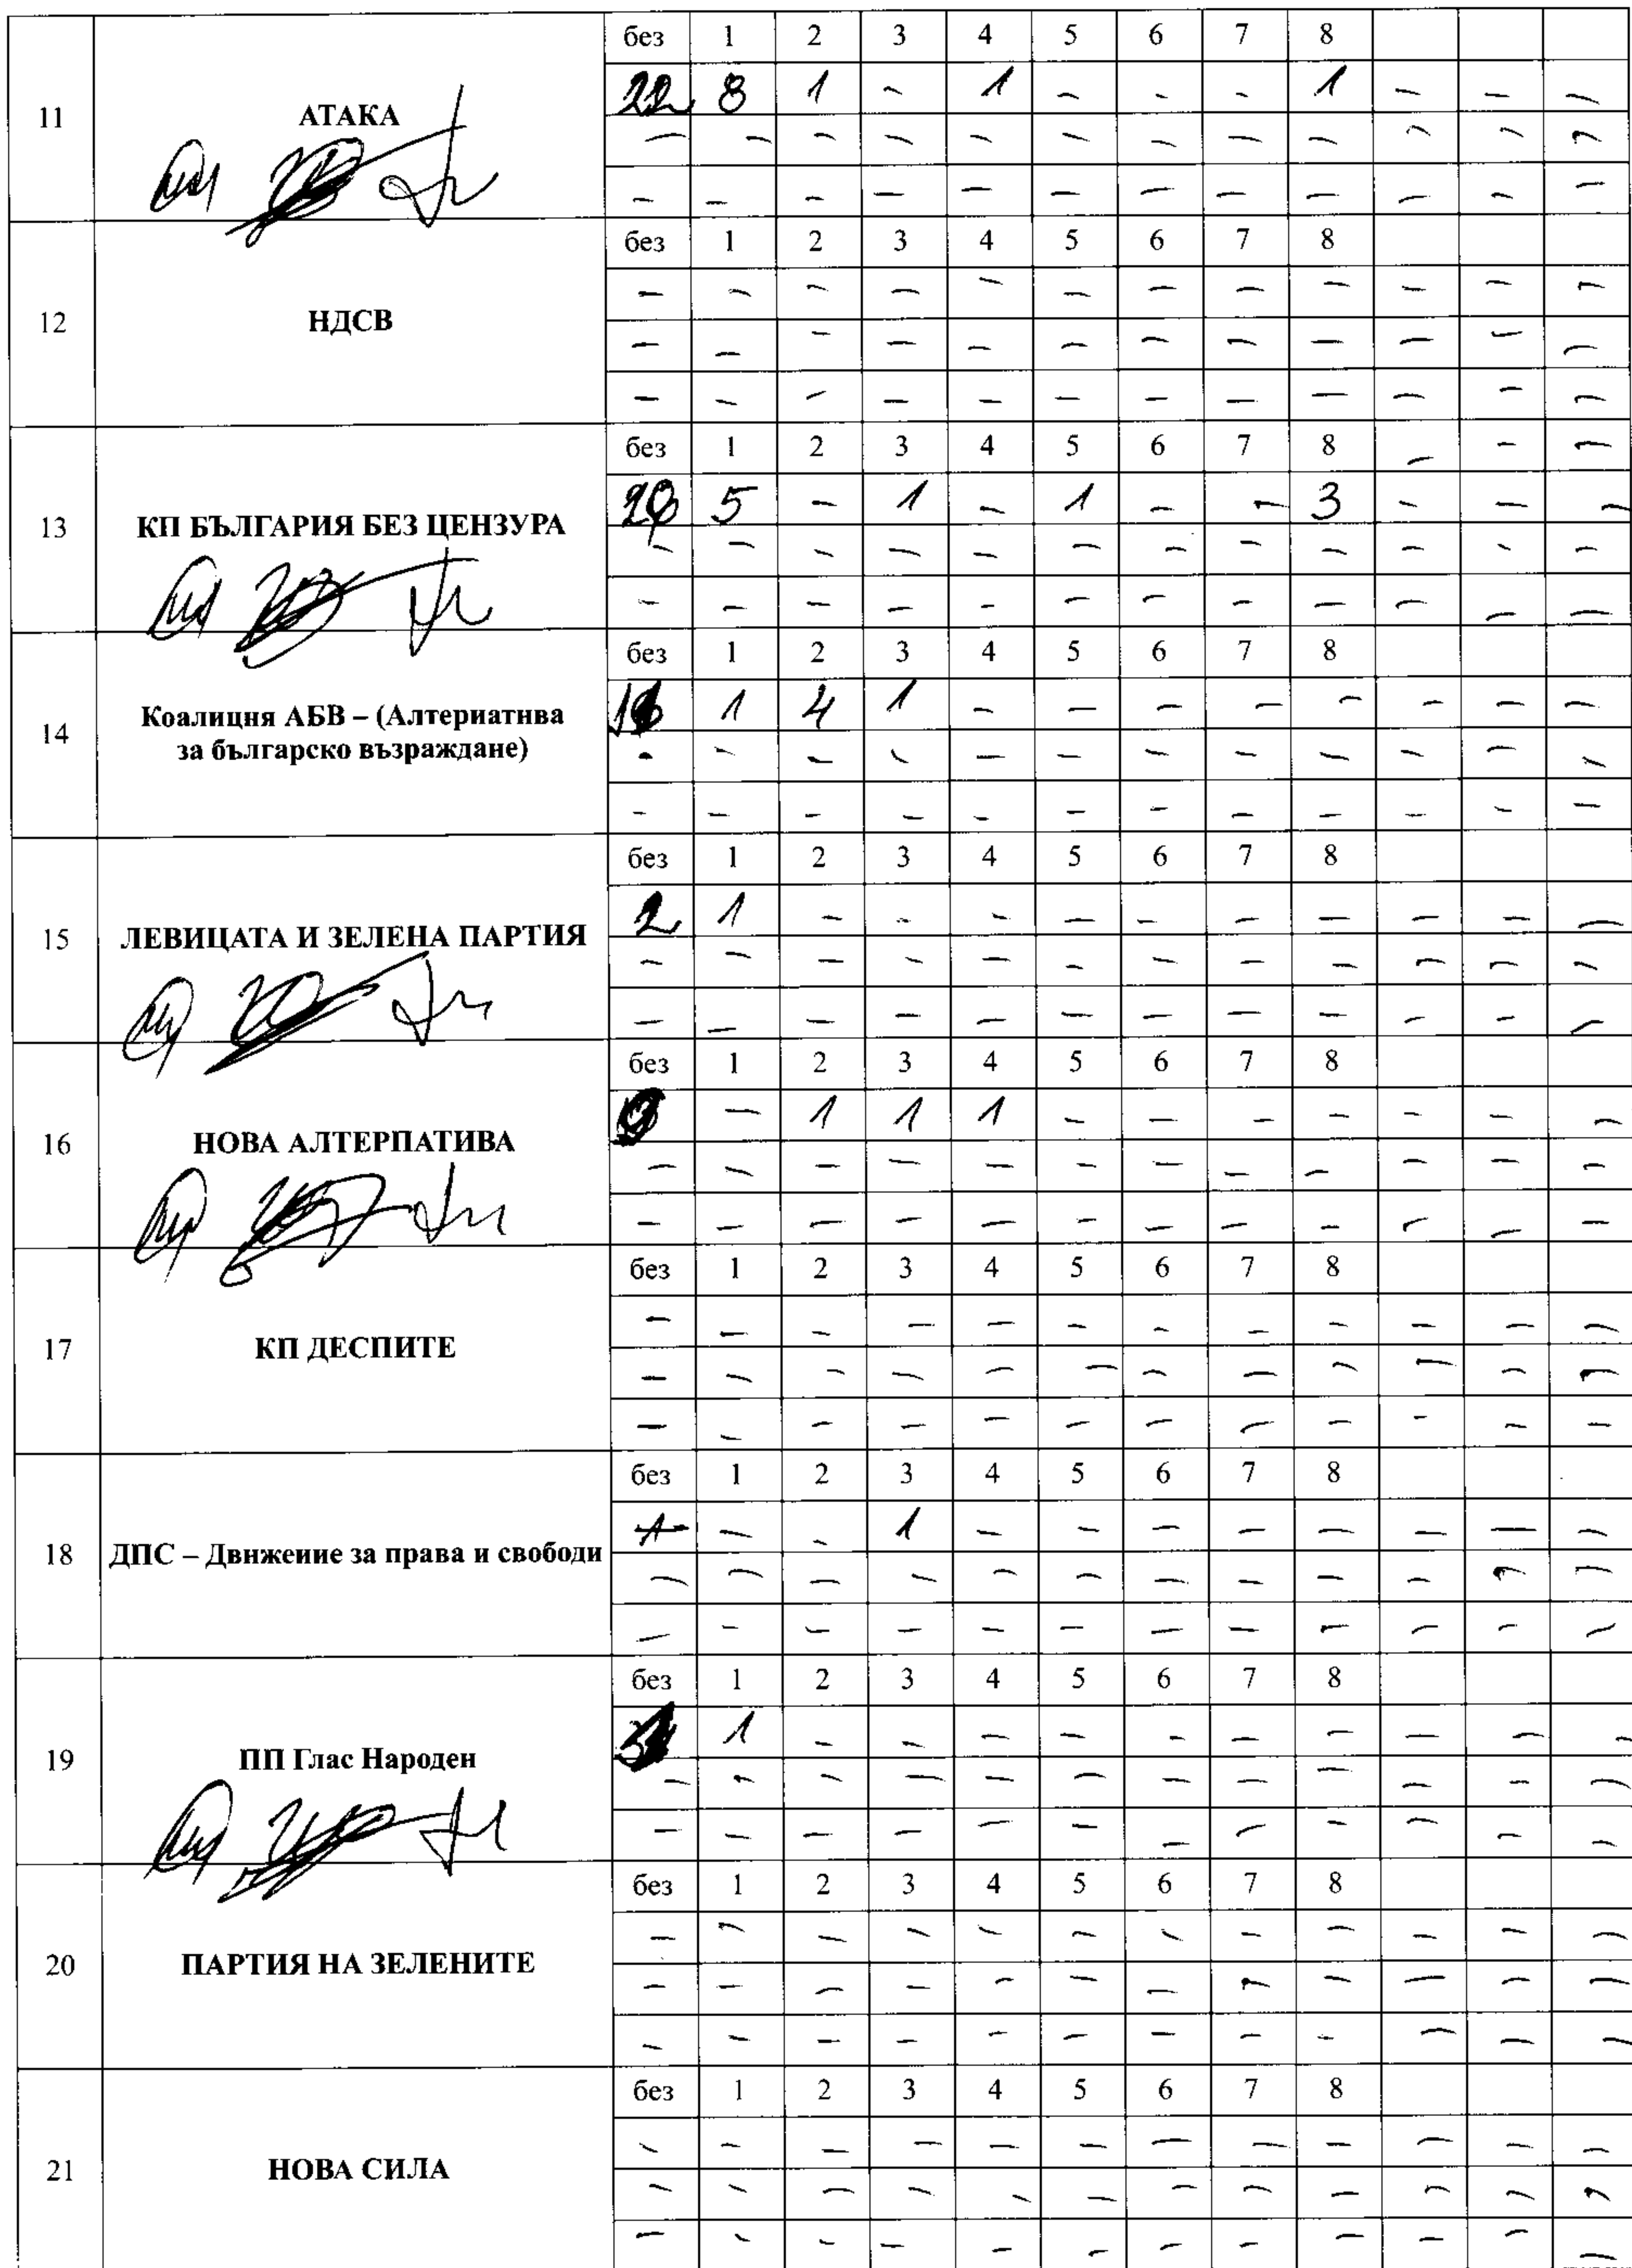 без 1 2 3 4 5 6 7 8
11 АТАКА
22 8 1 - 1 - - - 1 - - -
- - - - - - - - - - - -
- - - - - - - - - - - -
без 1 2 3 4 5 6 7 8
12 НДСВ
- - - - - - - - - - - -
- - - - - - - - - - - -
- - - - - - - - - - - -
без 1 2 3 4 5 6 7 8 - - -
13 КП БЪЛГАРИЯ БЕЗ ЦЕНЗУРА
5 - 1 - 1 - - 3 - - -
- - - - - - - - - - - -
- - - - - - - - - - - -
без 1 2 3 4 5 6 7 8
14 Коалицня АБВ – (Алтериатнва
за българско възраждане)
1 4 1 - - - - - - - -
- - - - - - - - - - - -
- - - - - - - - - - - -
без 1 2 3 4 5 6 7 8
15 ЛЕВИЦАТА И ЗЕЛЕНА ПАРТИЯ
2 1 - - - - - - - - - -
- - - - - - - - - - - -
- - - - - - - - - - - -
без 1 2 3 4 5 6 7 8
16 НОВА АЛТЕРПАТИВА
- 1 1 1 - - - - - - -
- - - - - - - - - - - -
- - - - - - - - - - - -
без 1 2 3 4 5 6 7 8
17 КП ДЕСПИТЕ
- - - - - - - - - - - -
- - - - - - - - - - - -
- - - - - - - - - - - -
без 1 2 3 4 5 6 7 8
18 ДПС – Двнжеиие за права и свободи
- - 1 - - - - - - - -
- - - - - - - - - - - -
- - - - - - - - - - - -
без 1 2 3 4 5 6 7 8
19 ПП Глас Народен
1 - - - - - - - - - -
- - - - - - - - - - - -
- - - - - - - - - - - -
без 1 2 3 4 5 6 7 8
20 ПАРТИЯ НА ЗЕЛЕНИТЕ
- - - - - - - - - - - -
- - - - - - - - - - - -
- - - - - - - - - - - -
без 1 2 3 4 5 6 7 8
21 НОВА СИЛА
- - - - - - - - - - - -
- - - - - - - - - - - -
- - - - - - - - - - - -